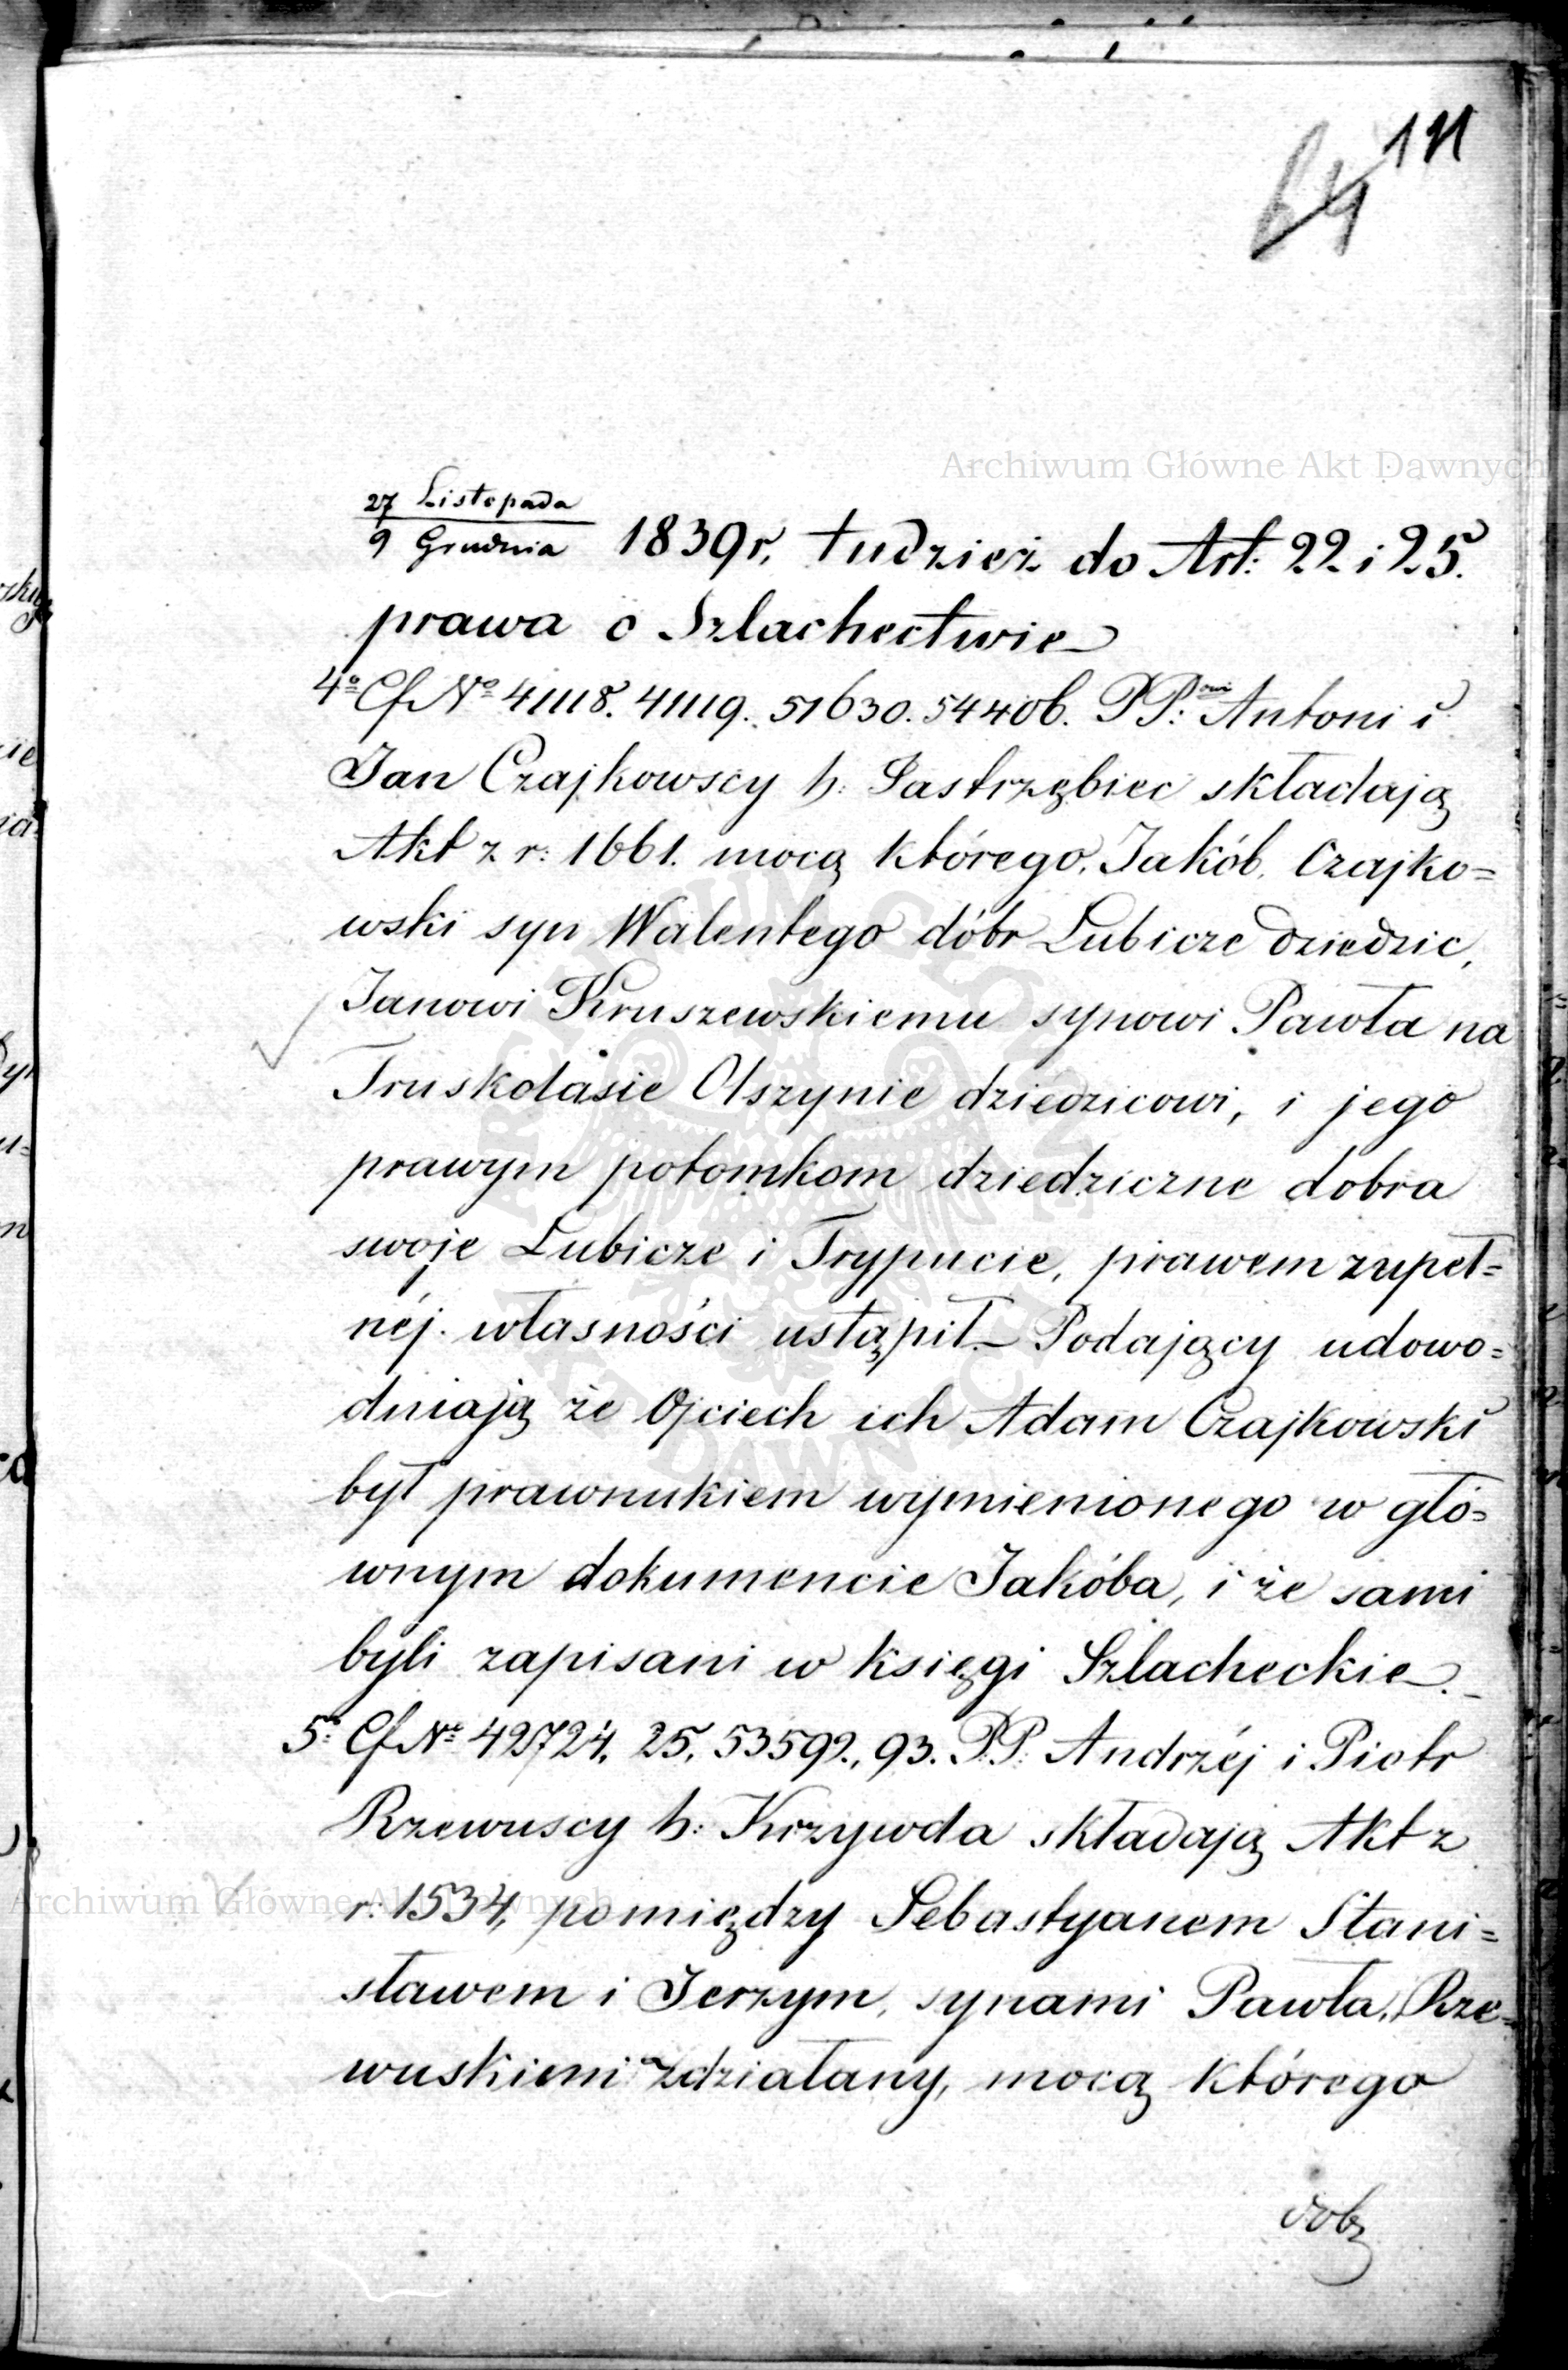 111
64
Archiwum Główne Akt Dawnych
27 Listopada
9 Grudnia 1839 r. tudzież do Art: 22 i 25.
prawa o Szlachectwie
4º Cf Nº 41118. 41119. 51630. 54406. PP: Antoni i
Jan Czajkowscy h: Jastrzębiec składają
Akt z r: 1661. mocą którego, Jakób Czajko=
wski syn Walentego dóbr Lubicze dziedzic,
Janowi Kruszewskiemu synowi Pawła na
Truskolasie Olszynie dziedzicowi, i jego
prawym potomkom dziedziczne dobra
swoje Lubicze i Trypucie, prawem zupeł=
néj własności ustąpił.— Podający udowo=
dniają że Ojciech ich Adam Czajkowski
był prawnukiem wymienionego w głó=
wnym dokumencie Jakóba, i że sami
byli zapisani w księgi Szlacheckie.—
5º Cf Nº 42724, 25, 53592., 93. P.P: Andrzéj i Piotr
Rzewuscy h: Krzywda składają Akt z
Archiwum Główne Akt Dawnych
r: 1534, pomiędzy Sebastyanem Stani=
sławem i Jerzym, synami Pawła, Rze=
wuskiemi zdziałany, mocą którego
dobr
ARCHIWUM GŁÓWNE AKT DAWNYCH